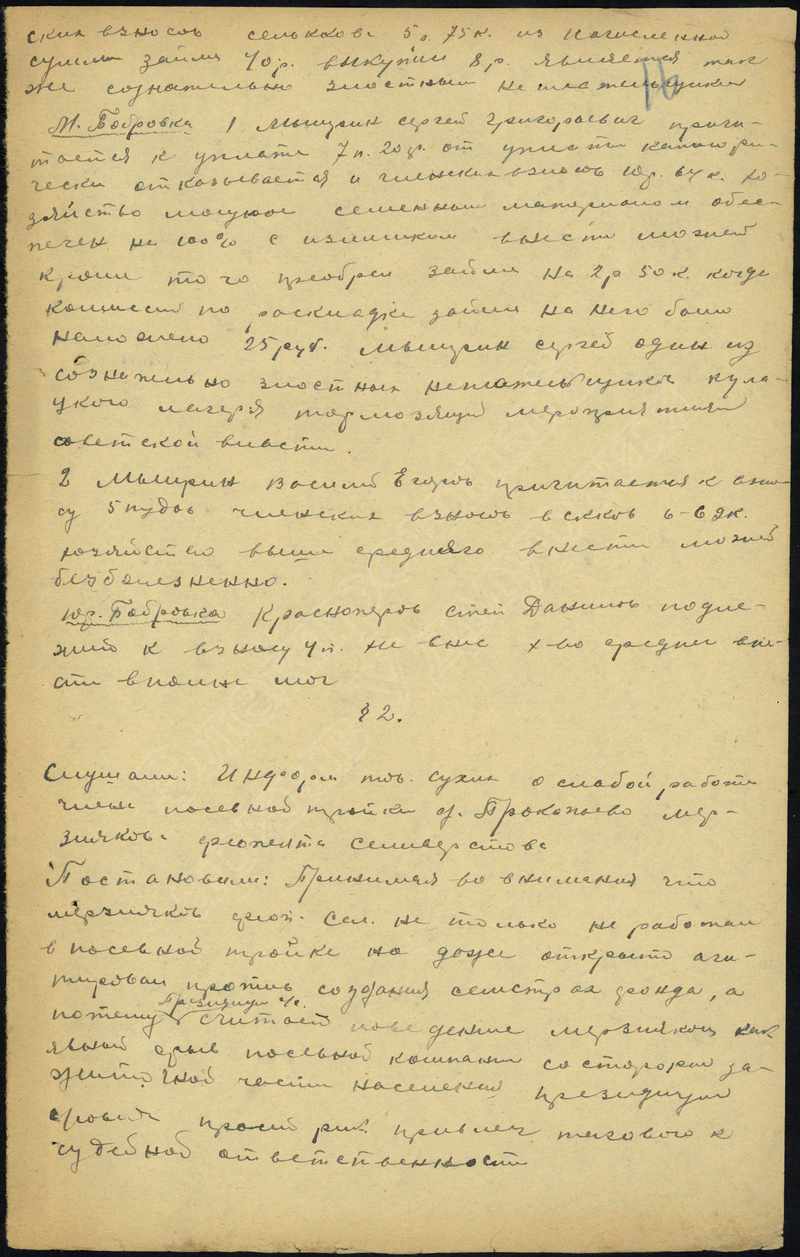 ских взносов селькков 5р. 75к. из начисленной
суммы займа 40р. выкупил 8р. является так
же сознательно злостным неплательщиком
16
М. Бобровка 1 Мышрин Сергей Григорьевич причи-
тается к уплате 7п. 20 от уплаты категори-
чески отказывается и членских взносов 64к. хо-
зяйство мощное семенным материалом обес-
печен на 100% с излишком внести может
кроме того преобрел займа на 2р 50к. когда
комиссией по раскладке займа на него было
наложено 25руб. Мышрин Сергей один из
сознательно злостных неплательщиков кула-
цкого лагеря тормозящий мероприятия
советской власти.
2 Мышрин Василий Егоров причитается к взно-
су 5 пудов членских взносов в скков 6-69к.
хозяйство выше среднего внести может
безболезненно.
Юр. Бобровка Красноперов Данилов подле-
жит к взносу 4п. не внес х-во среднее вне-
сти вполне мог
§ 2.
Слушали: Информ тов. Сухих о слабой работе
члена посевной тройки д. Прокопьево Мерз-
лякова Селиверстова
Постановили: Принимая во внимания что
Мерзляков Сел. не только не работал
в посевной тройке но даже открыто аги-
тировал против создания семстрах фонда, а
Президиум с/с.
потому считает поведение Мерзлякова как
явный срыв посевной компании со стороны за-
житочной части населения президиум
просит рик привлеч такового к
судебной ответственности